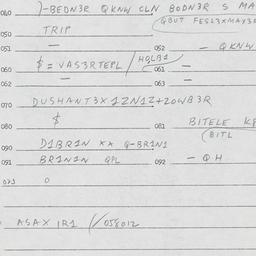 040 )-BEDN3R QKNW CLN BODN3R S MA
(QBUT FESL3XMAY3R
050 TRIP
051 — 052 — QKNW
060 $ = VAS3RTEPL / HQLB1 061 —
062 — 063 —
070 DUSHANT3X1ZN1Z+ZOWB3R
080 $ 081 BITELE KR
(BITL
090 D1BR1N XX Q-BR1N1
091 BR1N1N QPL 092 — QH
093 0
ASAX 1R1 (/058012